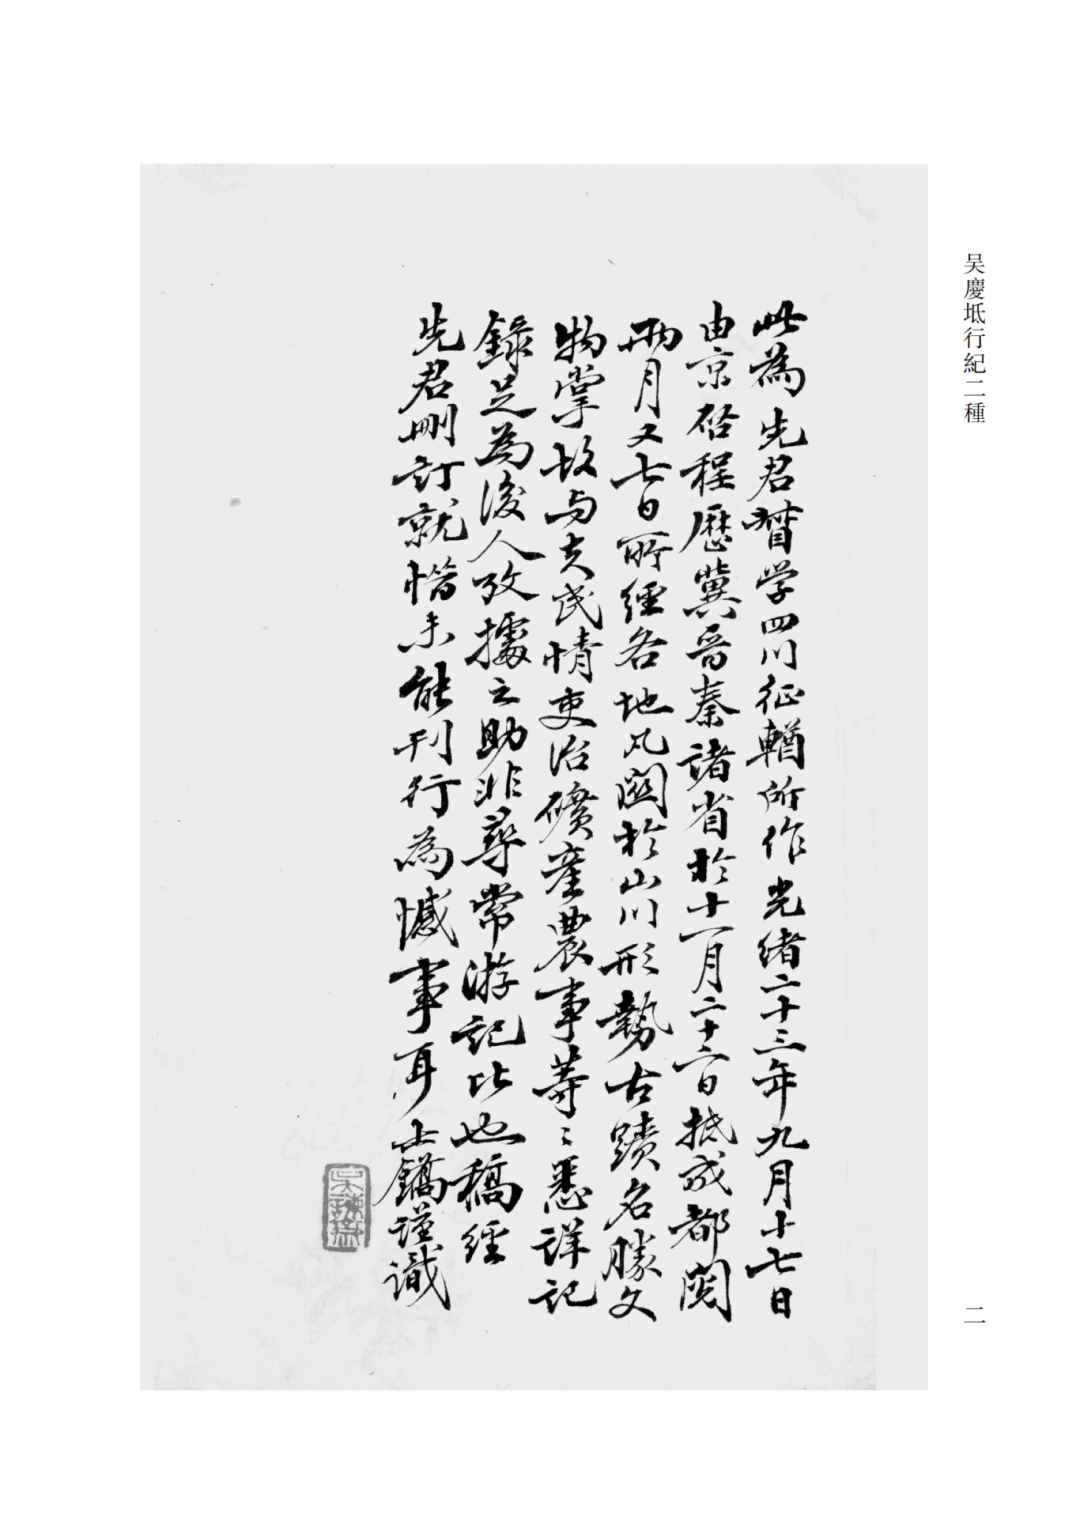 吴慶坻行紀二種
二
此為先君督学四川征輶所作光緒二十三年九月十七日
由京啓程歷冀晋秦諸省於十一月二十六日抵成都閱
兩月又七日所經各地凡關於山川形勢古蹟名勝文
物掌故与夫民情吏治礦産農事等〻悉詳記
錄足為後人攷據之助非尋常游記比也稿經
先君刪訂就惜未能刊行為憾事耳士鐈謹識